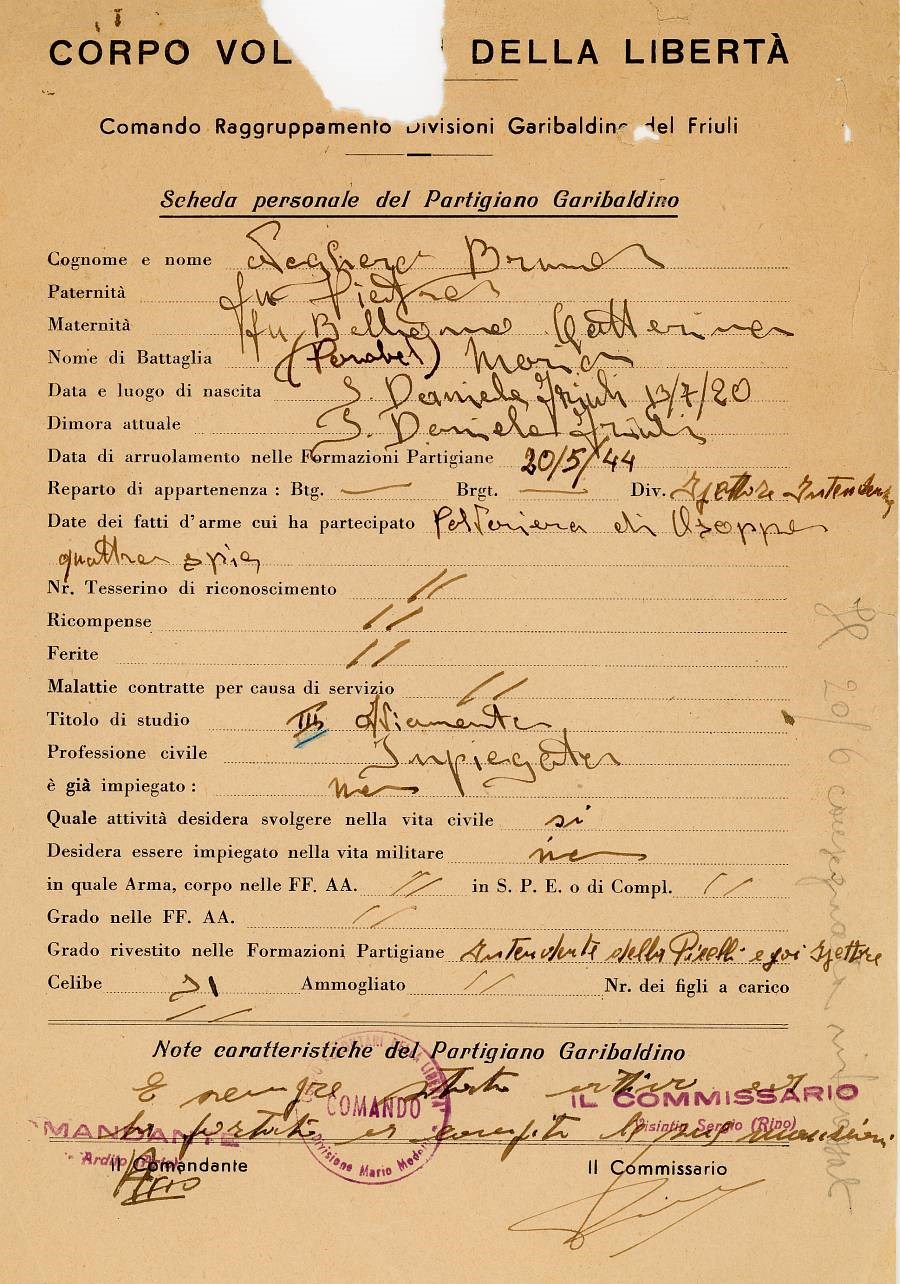 CORPO VOL DELLA LIBERTÀ
Comando Raggruppamento Divisioni Garibaldine del Friuli
Scheda personale del Partigiano Garibaldino
Cognome e nome Bruno
Paternità fu Pietro
Maternità fu Catterina
Nome di Battaglia Mario
Data e luogo di nascita S. Daniele Friuli 13/7/20
Dimora attuale S. Daniele Friuli
Data di arruolamento nelle Formazioni Partigiane 20/5/44
Reparto di appartenenza : Btg. — Brgt. — Div.
Date dei fatti d'arme cui ha partecipato Polveriera di Osoppo
quattro spie
Nr. Tesserino di riconoscimento //
Ricompense //
Ferite //
Malattie contratte per causa di servizio //
Titolo di studio III
Professione civile Impiegato
è già impiegato : no
Quale attività desidera svolgere nella vita civile si
Desidera essere impiegato nella vita militare no
in quale Arma, corpo nelle FF. AA. // in S. P. E. o di Compl. //
Grado nelle FF. AA. //
Grado rivestito nelle Formazioni Partigiane della e poi
Celibe si Ammogliato // Nr. dei figli a carico
//
Note caratteristiche del Partigiano Garibaldino
È sempre stato attivo ed
IL COMMISSARIO
COMANDO
ha portato a le sue mansioni
MANDANTE
Visintin Sergio (Rino)
Divisione Mario Modotti
Il Comandante Il Commissario
20/6